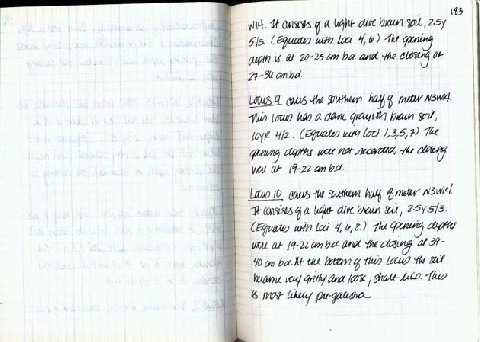 183
W14. It consists of a light olive brown soil, 2.5y
5/3 (Equates with Loci 4, 6) The opening
depth is at 20-25 cm bd and the closing at
27-30 cmbd.
Locus 9 covers the southern half of meter N3W14
This locus has a dark grayish brown soil,
10yr 4/2. (Equates with loci 1, 3, 5, 7) The
opening depths were not recorded, the closing
was at 19-22 cm bd.
Locus 10 covers the southern half of meter N3W14
It consists of a light olive brown soil, 2.5y 5/3.
(Equates with loci 4, 6, 8.) The opening depths
were at 19-22 cm bd and the closing at 39-
40 cm bd. At the bottom of this locus the soil
became very gritty and loose, shale-like. This
is most likely pre-galisteo